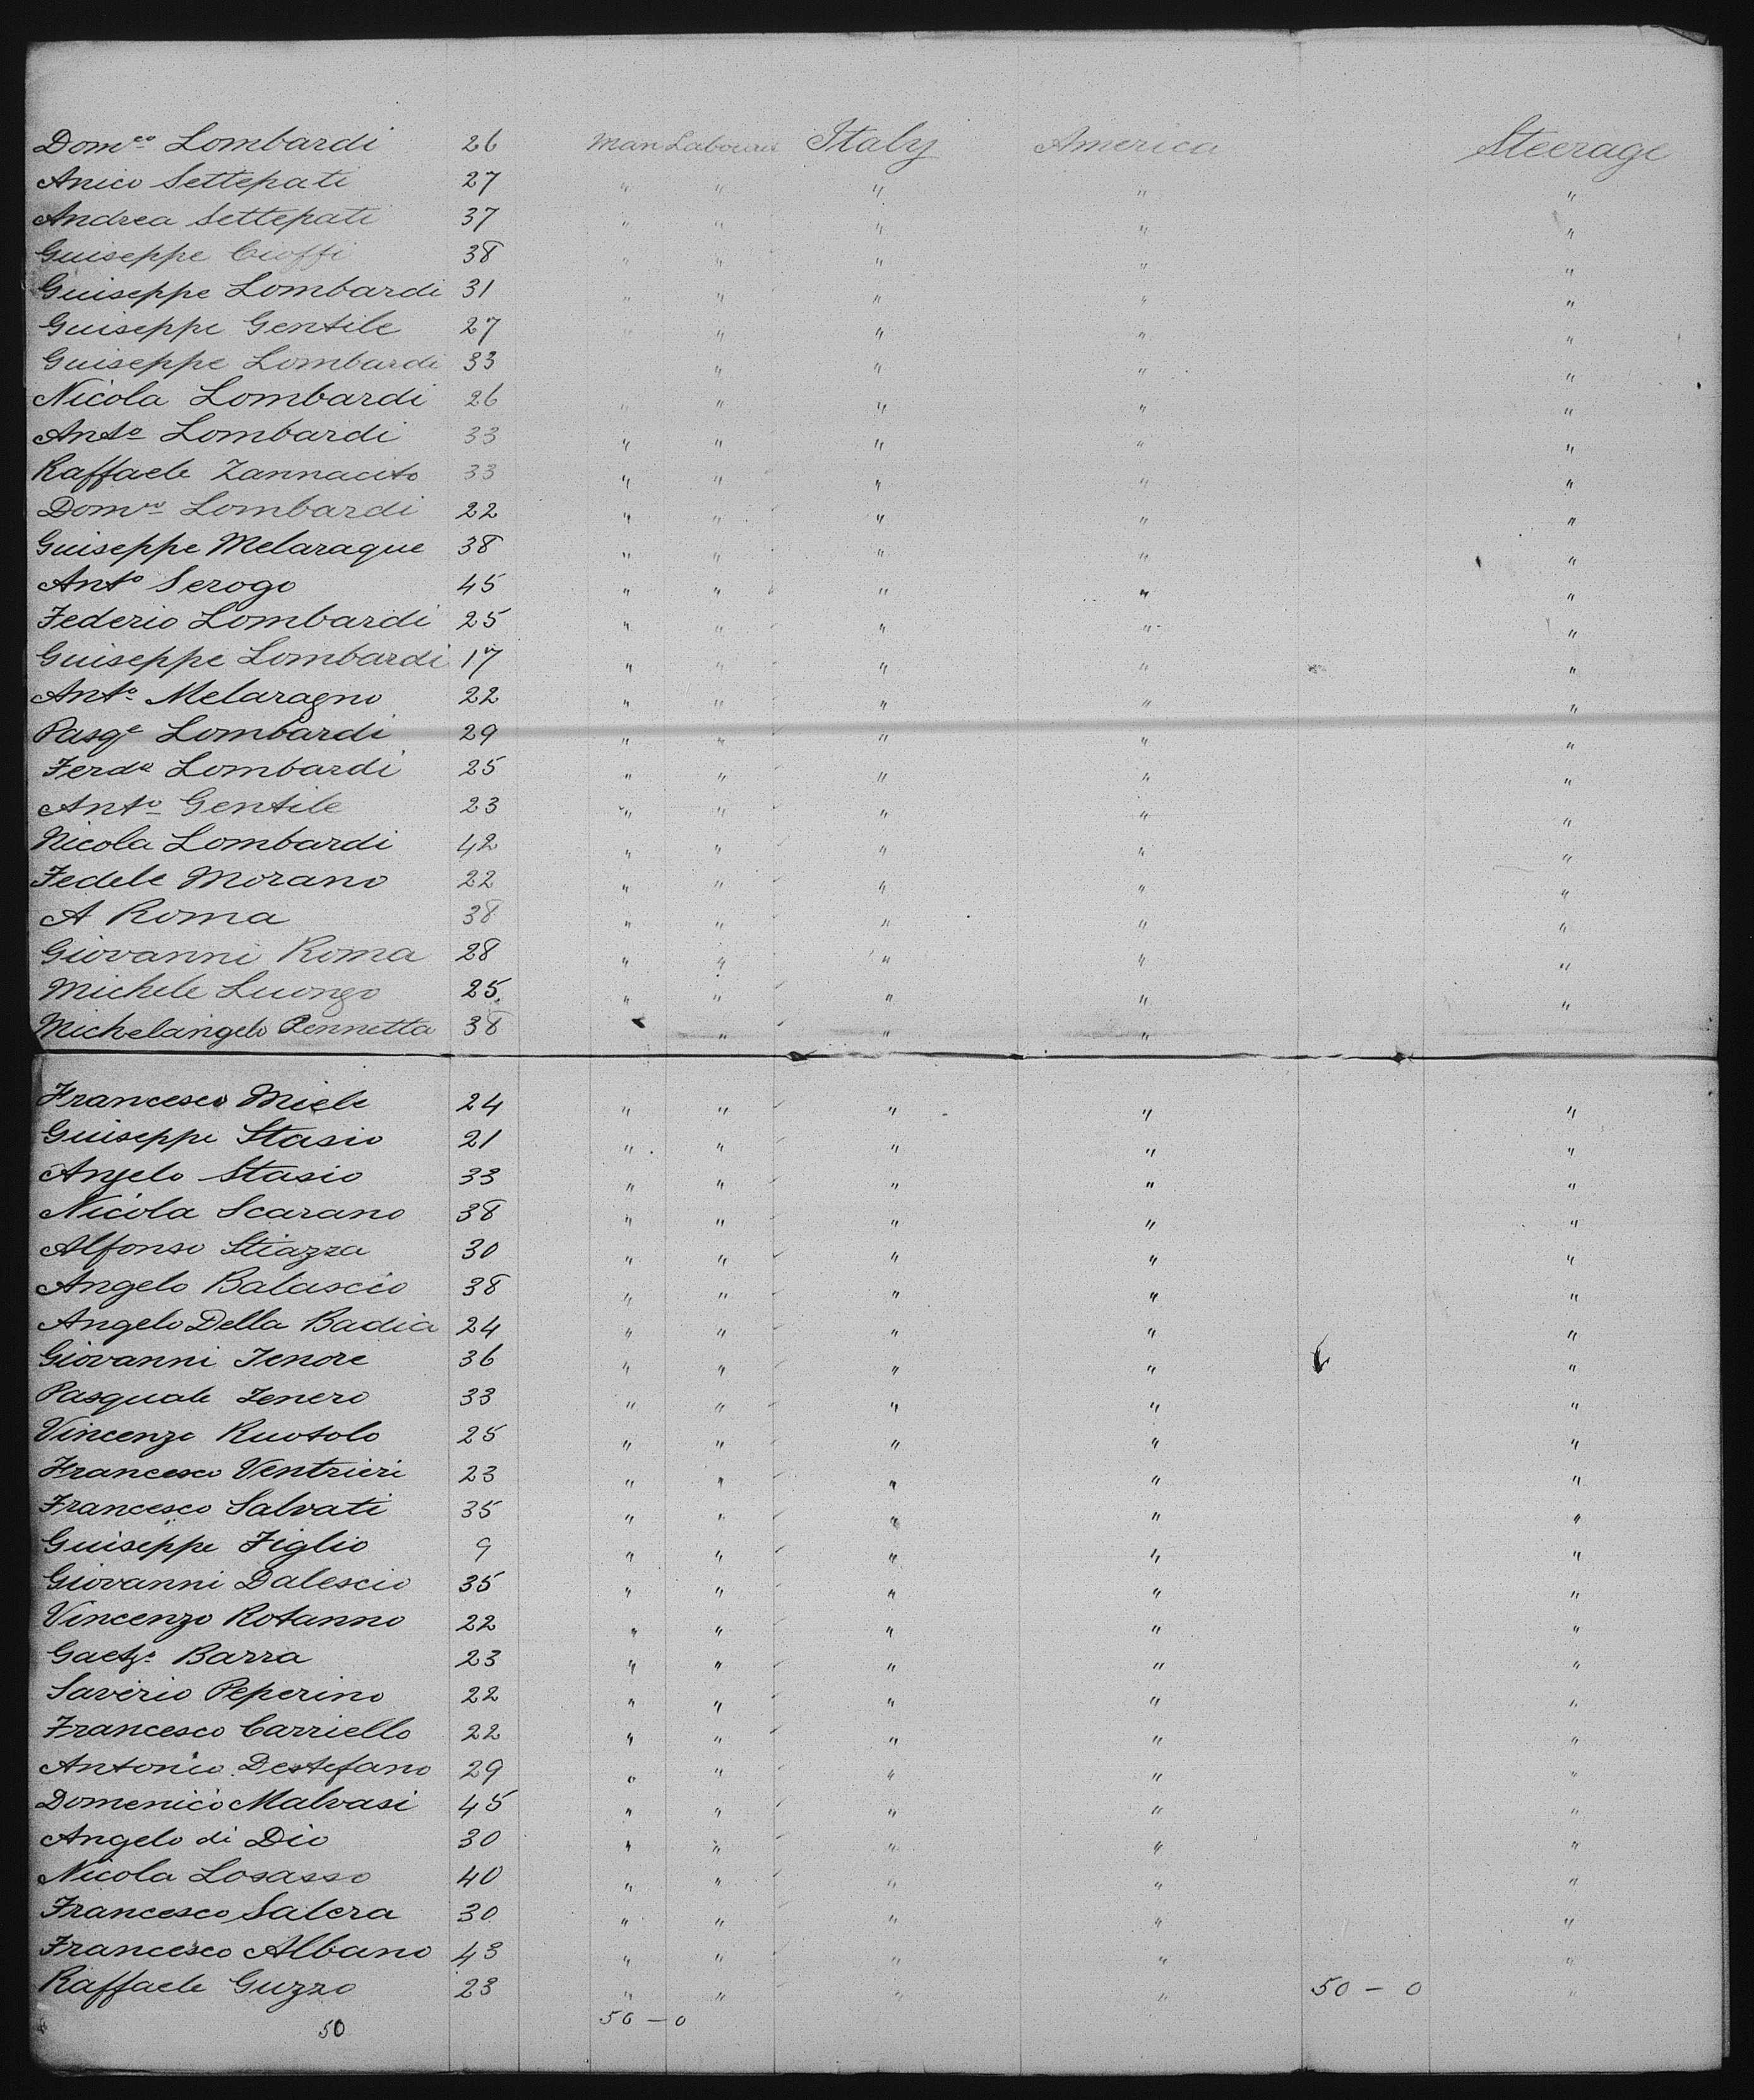 Domco Lombardi 26 Man Labourer Italy America Steerage
Anico Settepati 27 " " " " "
Andrea Settepati 37 " " " " "
Guiseppe Cioffi 38 " " " " "
Guiseppe Lombardi 31 " " " " "
Guiseppe Gentile 27 " " " " "
Guiseppe Lombardi 33 " " " "
Nicola Lombardi 26 " " " " "
Anto Lombardi 33 " " " " "
Raffaele Zannacito 33 " " " " "
Domco Lombardi 22 " " " " "
Guiseppe Melaraque 38 " " " " "
Anto Serogo 45 " " " " "
Federio Lombardi 25 " " " " "
Guiseppe Lombardi 17 " " " " "
Anto Melaragno 22 " " " " "
Pasqe Lombardi 29 " " " " "
Ferdo Lombardi 25 " " " " "
Anto Gentile 23 " " " " "
Nicola Lombardi 42 " " " " "
Fedele Morano 22 " " " " "
A Roma 38 " " " " "
Giovanni Roma 28 " " " " "
Michele Luongo 25 " " " " "
Michelangelo Pennetta 38 " " "
Francesco Miele 24 " " " " "
Guiseppe Stasio 21 " " " " "
Angelo Stasio 33 " " " " "
Nicola Scarano 38 " " " " "
Alfonso Stiazza 30 " " " " "
Angelo Balascio 38 " " " " "
Angelo Della Badia 24 " " " " "
Giovanni Tenore 36 " " " " "
Pasquale Tenero 33 " " " " "
Vincenzo Ruotolo 25 " " " " "
Francesco Ventrieri 23 " " " " "
Francesco Salvati 35 " " " " "
Guiseppe Figlio 9 " " " " "
Giovanni Dalescio 35 " " " " "
Vincenzo Rotanno 22 " " " " "
Gaetzo Barra 23 " " " " "
Saverio Peperino 22 " " " " "
Francesco Carriello 22 " " " " "
Antonio Destefano 29 " " " " "
Domenico Malvasi 45 " " " " "
Angelo di Dio 30 " " " " "
Nicola Losasso 40 " " " " "
Francesco Salera 30 " " " " "
Francesco Albano 43 " " " " "
Raffaele Guzzo 23 " " " " 50 – 0 "
50 50 – 0